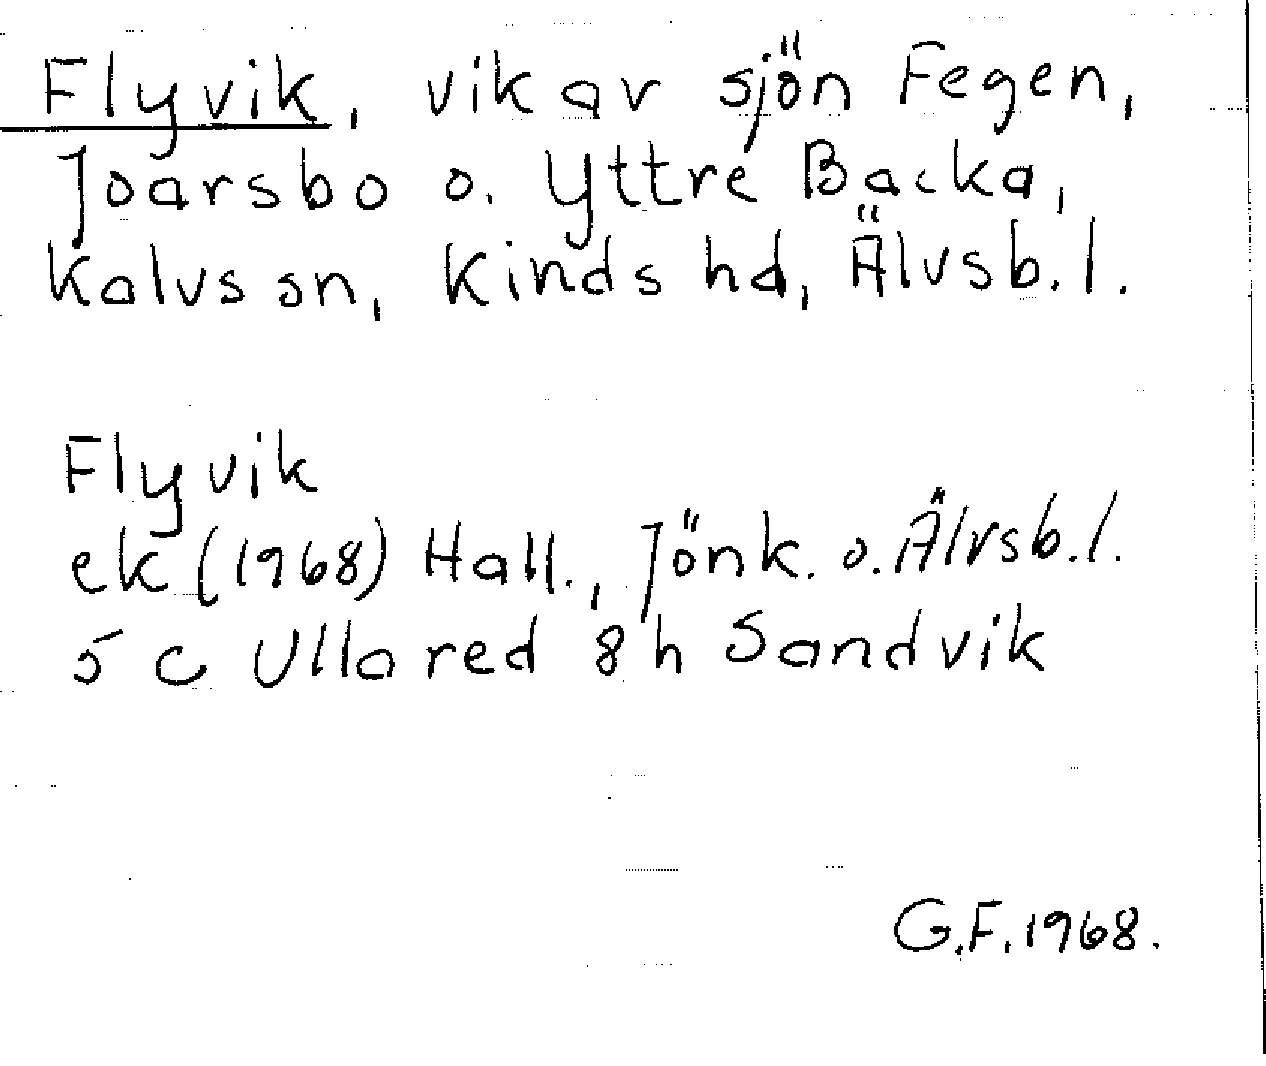 Flyvik, vik av sjön Fegen,
Joarsbo o. Yttre Backa,
Kalvs sn, Kinds hd, Älvsb.l.
Flyvik
ek (1968) Hall., Jönk. o. Älvsb.l.
5 C Ullared 8 h Sandvik
G.F. 1968.